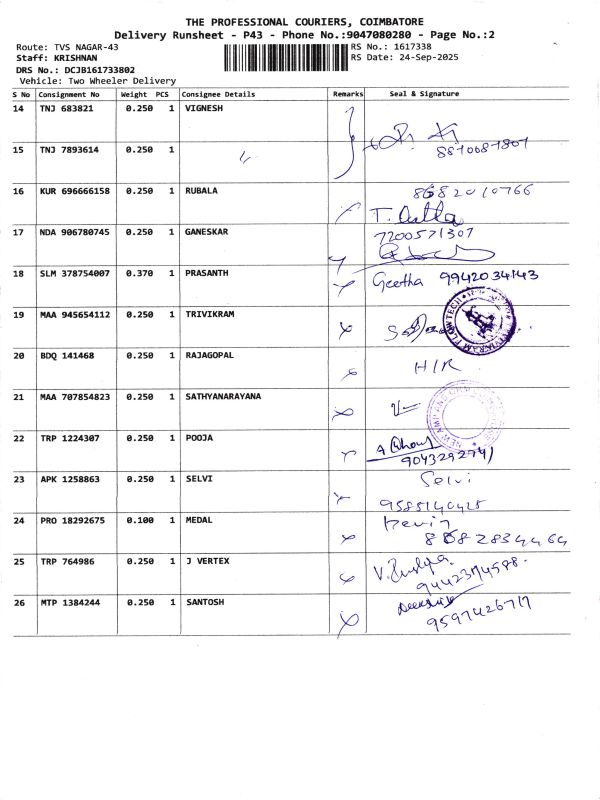 THE PROFESSIONAL COURIERS, COIMBATORE
Delivery Runsheet - P43 - Phone No.:9047080280 - Page No.:2
Route: TVS NAGAR-43 RS No.: 1617338
Staff: KRISHNAN RS Date: 24-Sep-2025
DRS No.: DCJB161733802
Vehicle: Two Wheeler Delivery
S No Consignment No Weight PCS Consignee Details Remarks Seal & Signature
14 TNJ 683821 0.250 1 VIGNESH
15 TNJ 7893614 0.250 1
16 KUR 696666158 0.250 1 RUBALA
17 NDA 906780745 0.250 1 GANESKAR 7200571307
18 SLM 378754007 0.370 1 PRASANTH Geetha 9942034143
19 MAA 945654112 0.250 1 TRIVIKRAM
20 BDQ 141468 0.250 1 RAJAGOPAL H/R
21 MAA 707854823 0.250 1 SATHYANARAYANA
22 TRP 1224307 0.250 1 POOJA
23 APK 1258863 0.250 1 SELVI Selvi
9585140425
24 PRO 18292675 0.100 1 MEDAL
25 TRP 764986 0.250 1 J VERTEX
26 MTP 1384244 0.250 1 SANTOSH